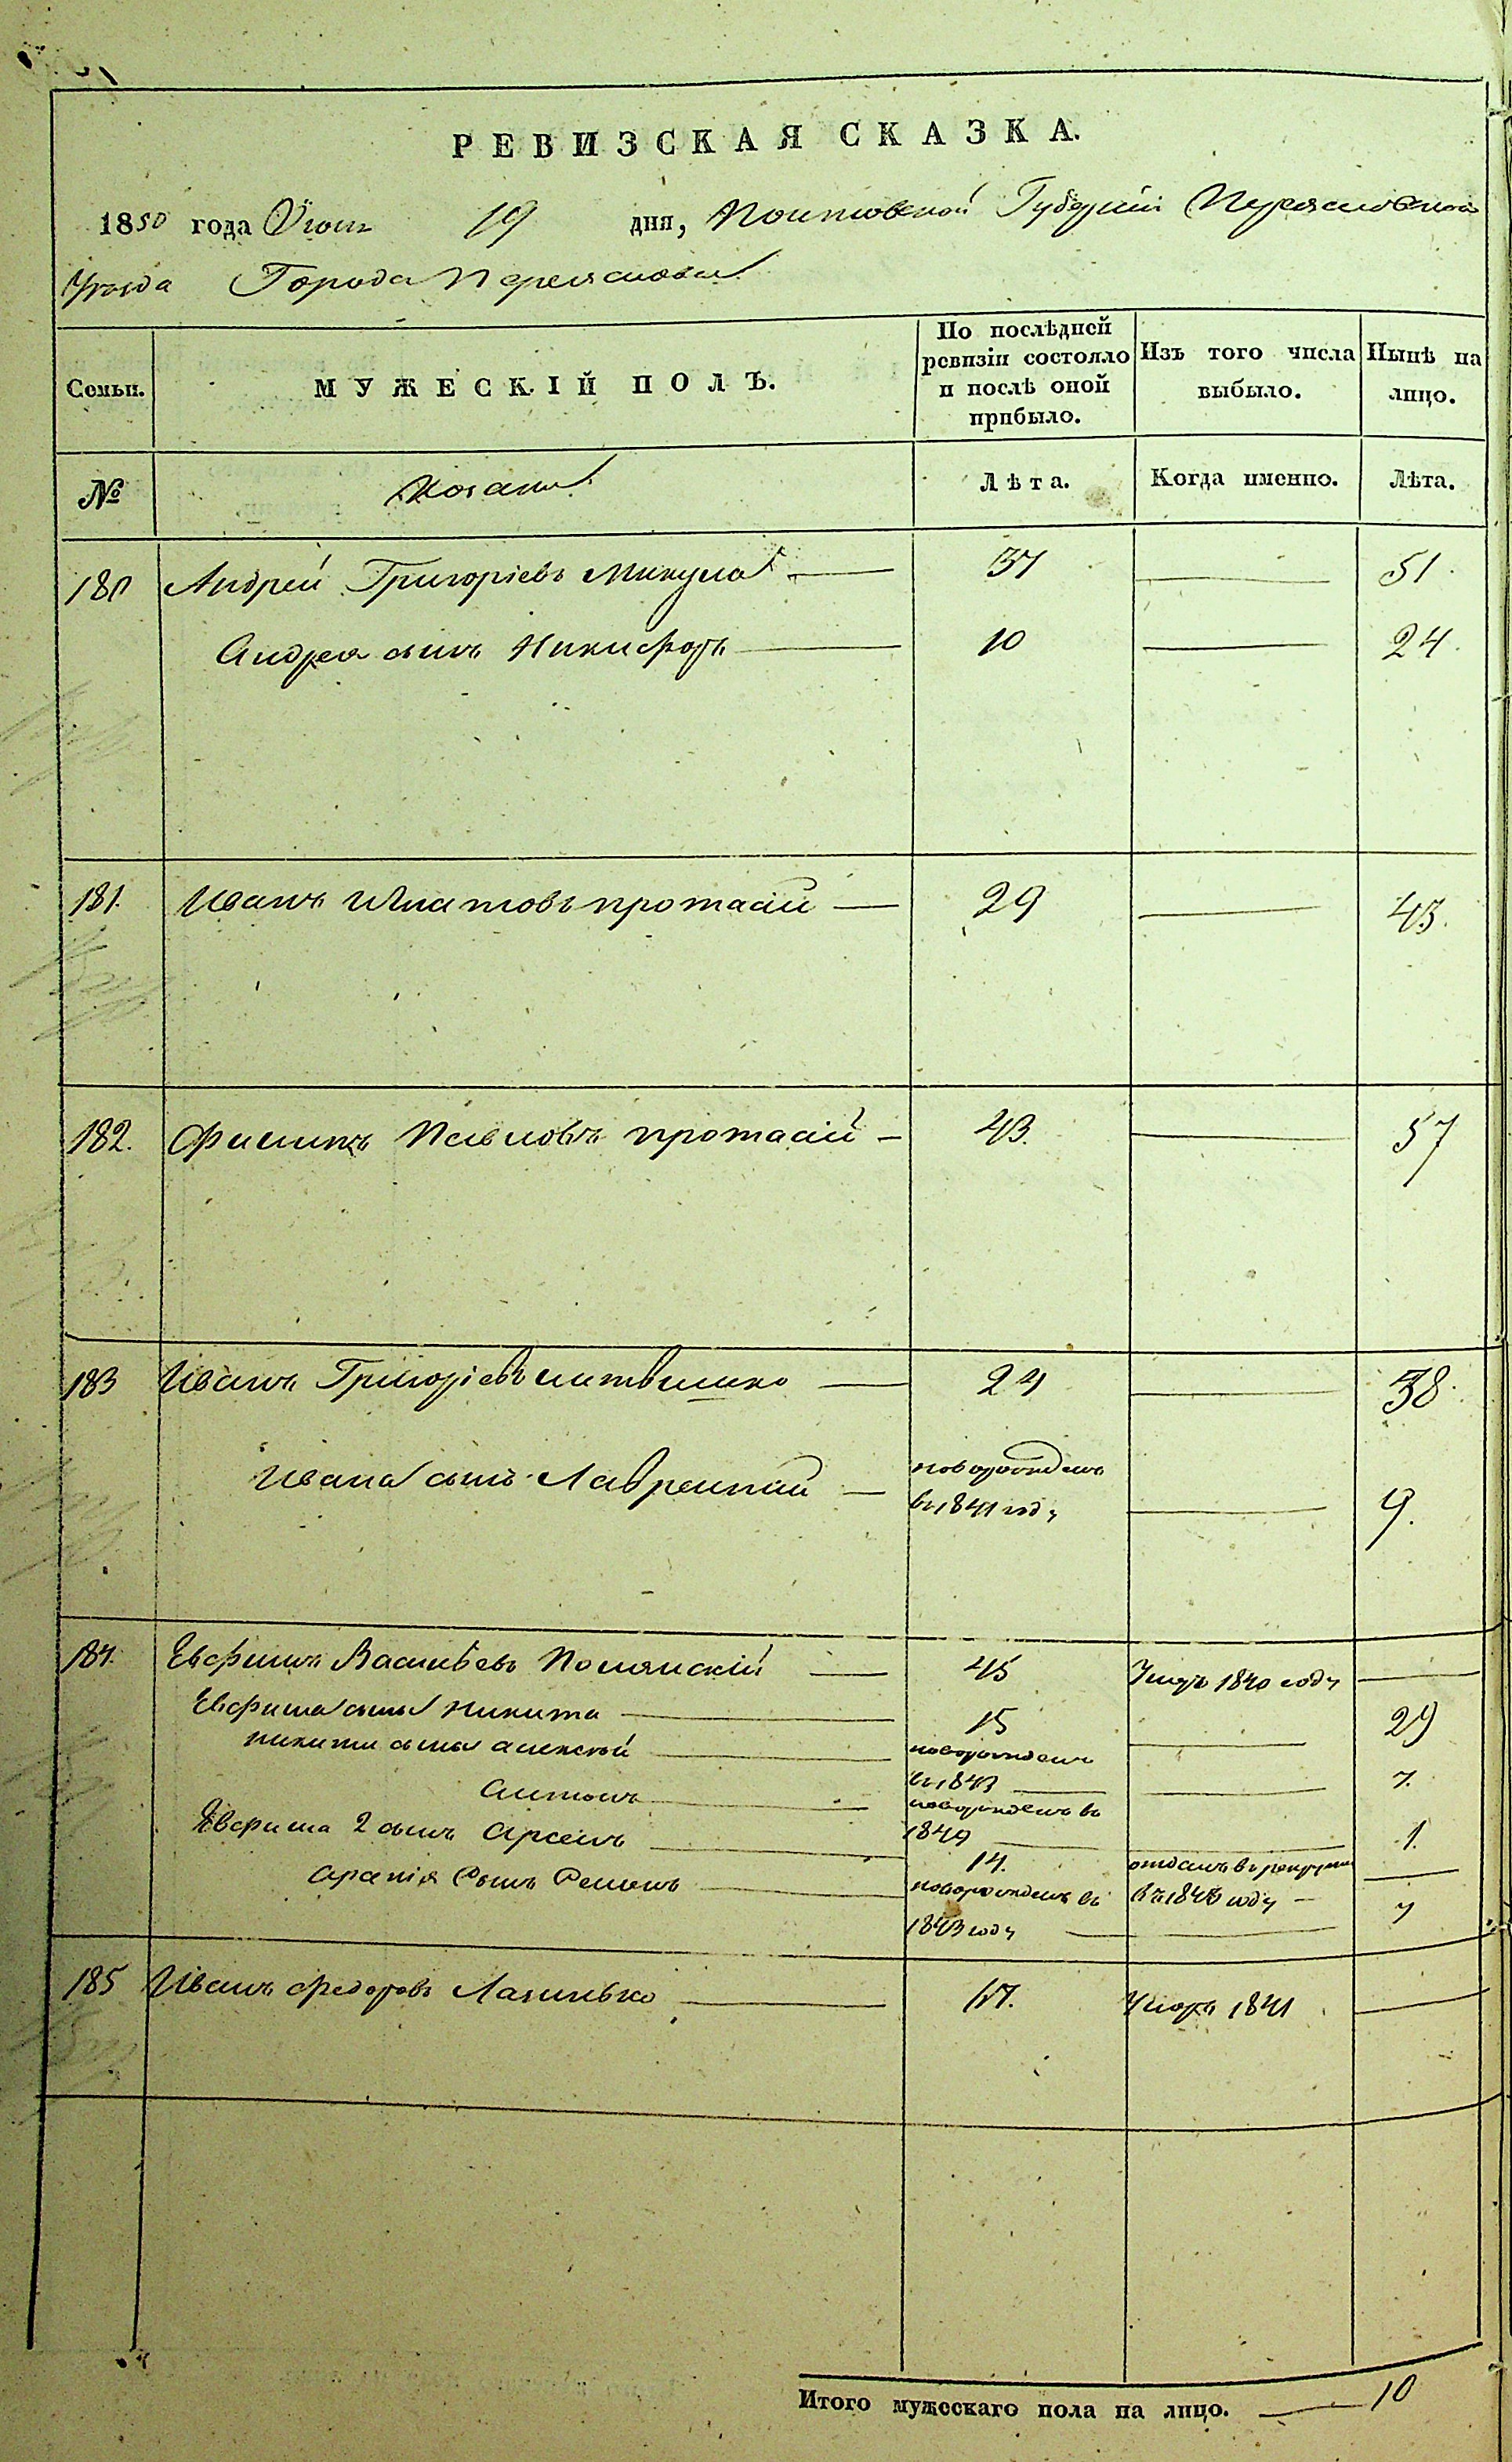 РЕВИЗСКАЯ СКАЗКА.
1850 года Июня 19 дня, Полтавской Губерніи Переяславскаго
Уѣзда Города Переяслова
Семьи.
МУЖЕСКІЙ ПОЛЪ.
По послѣдней
ревизіи состояло
и послѣ оной
прибыло.
Изъ того числа
выбыло.
Нынѣ на
лицо.
№
Козаки
Лѣта.
Когда именно.
Лѣта.
180 Андрей Григоріевъ Микула 37 51.
Андрея сынъ Никифоръ 10 24.
181. Иванъ Игнатовъ протасій 29 43.
182. Филипъ Павловъ протасій 43. 57
183 Иванъ Григоріевъ литвинко 24 38.
Ивана сынъ Лаврентій новорожденъ
въ 1841 году 9.
184. Евфимъ Васильевъ Полянскій 45 Умеръ 1840 году
Евфима сынъ Никита 15 29
никиты сынъ алексѣй новорожденъ
въ 1843 7.
антонъ новорожденъ въ
1849 1.
Евфима 2 сынъ Арсенъ 14. отданъ в рекруты
въ 1840 году
Семенъ новорожденъ въ
1843 году 7
185 Иванъ Федоровъ Лазинько 67. Умеръ 1841
Итого мужескаго пола на лицо. 10